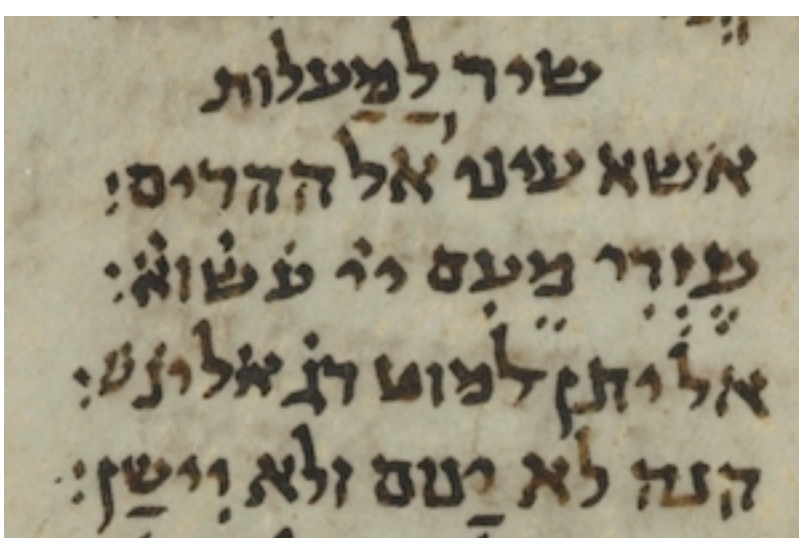 שיר לַמַעלות
אשא עיני אל ההרים:
עֶזְרִי מֵעִם יי עׄ שׄ ואׄ:
אל יתן למוט רגׄ אל ינׄ שׄ:
הנה לא יָנום ולא יִישַן: